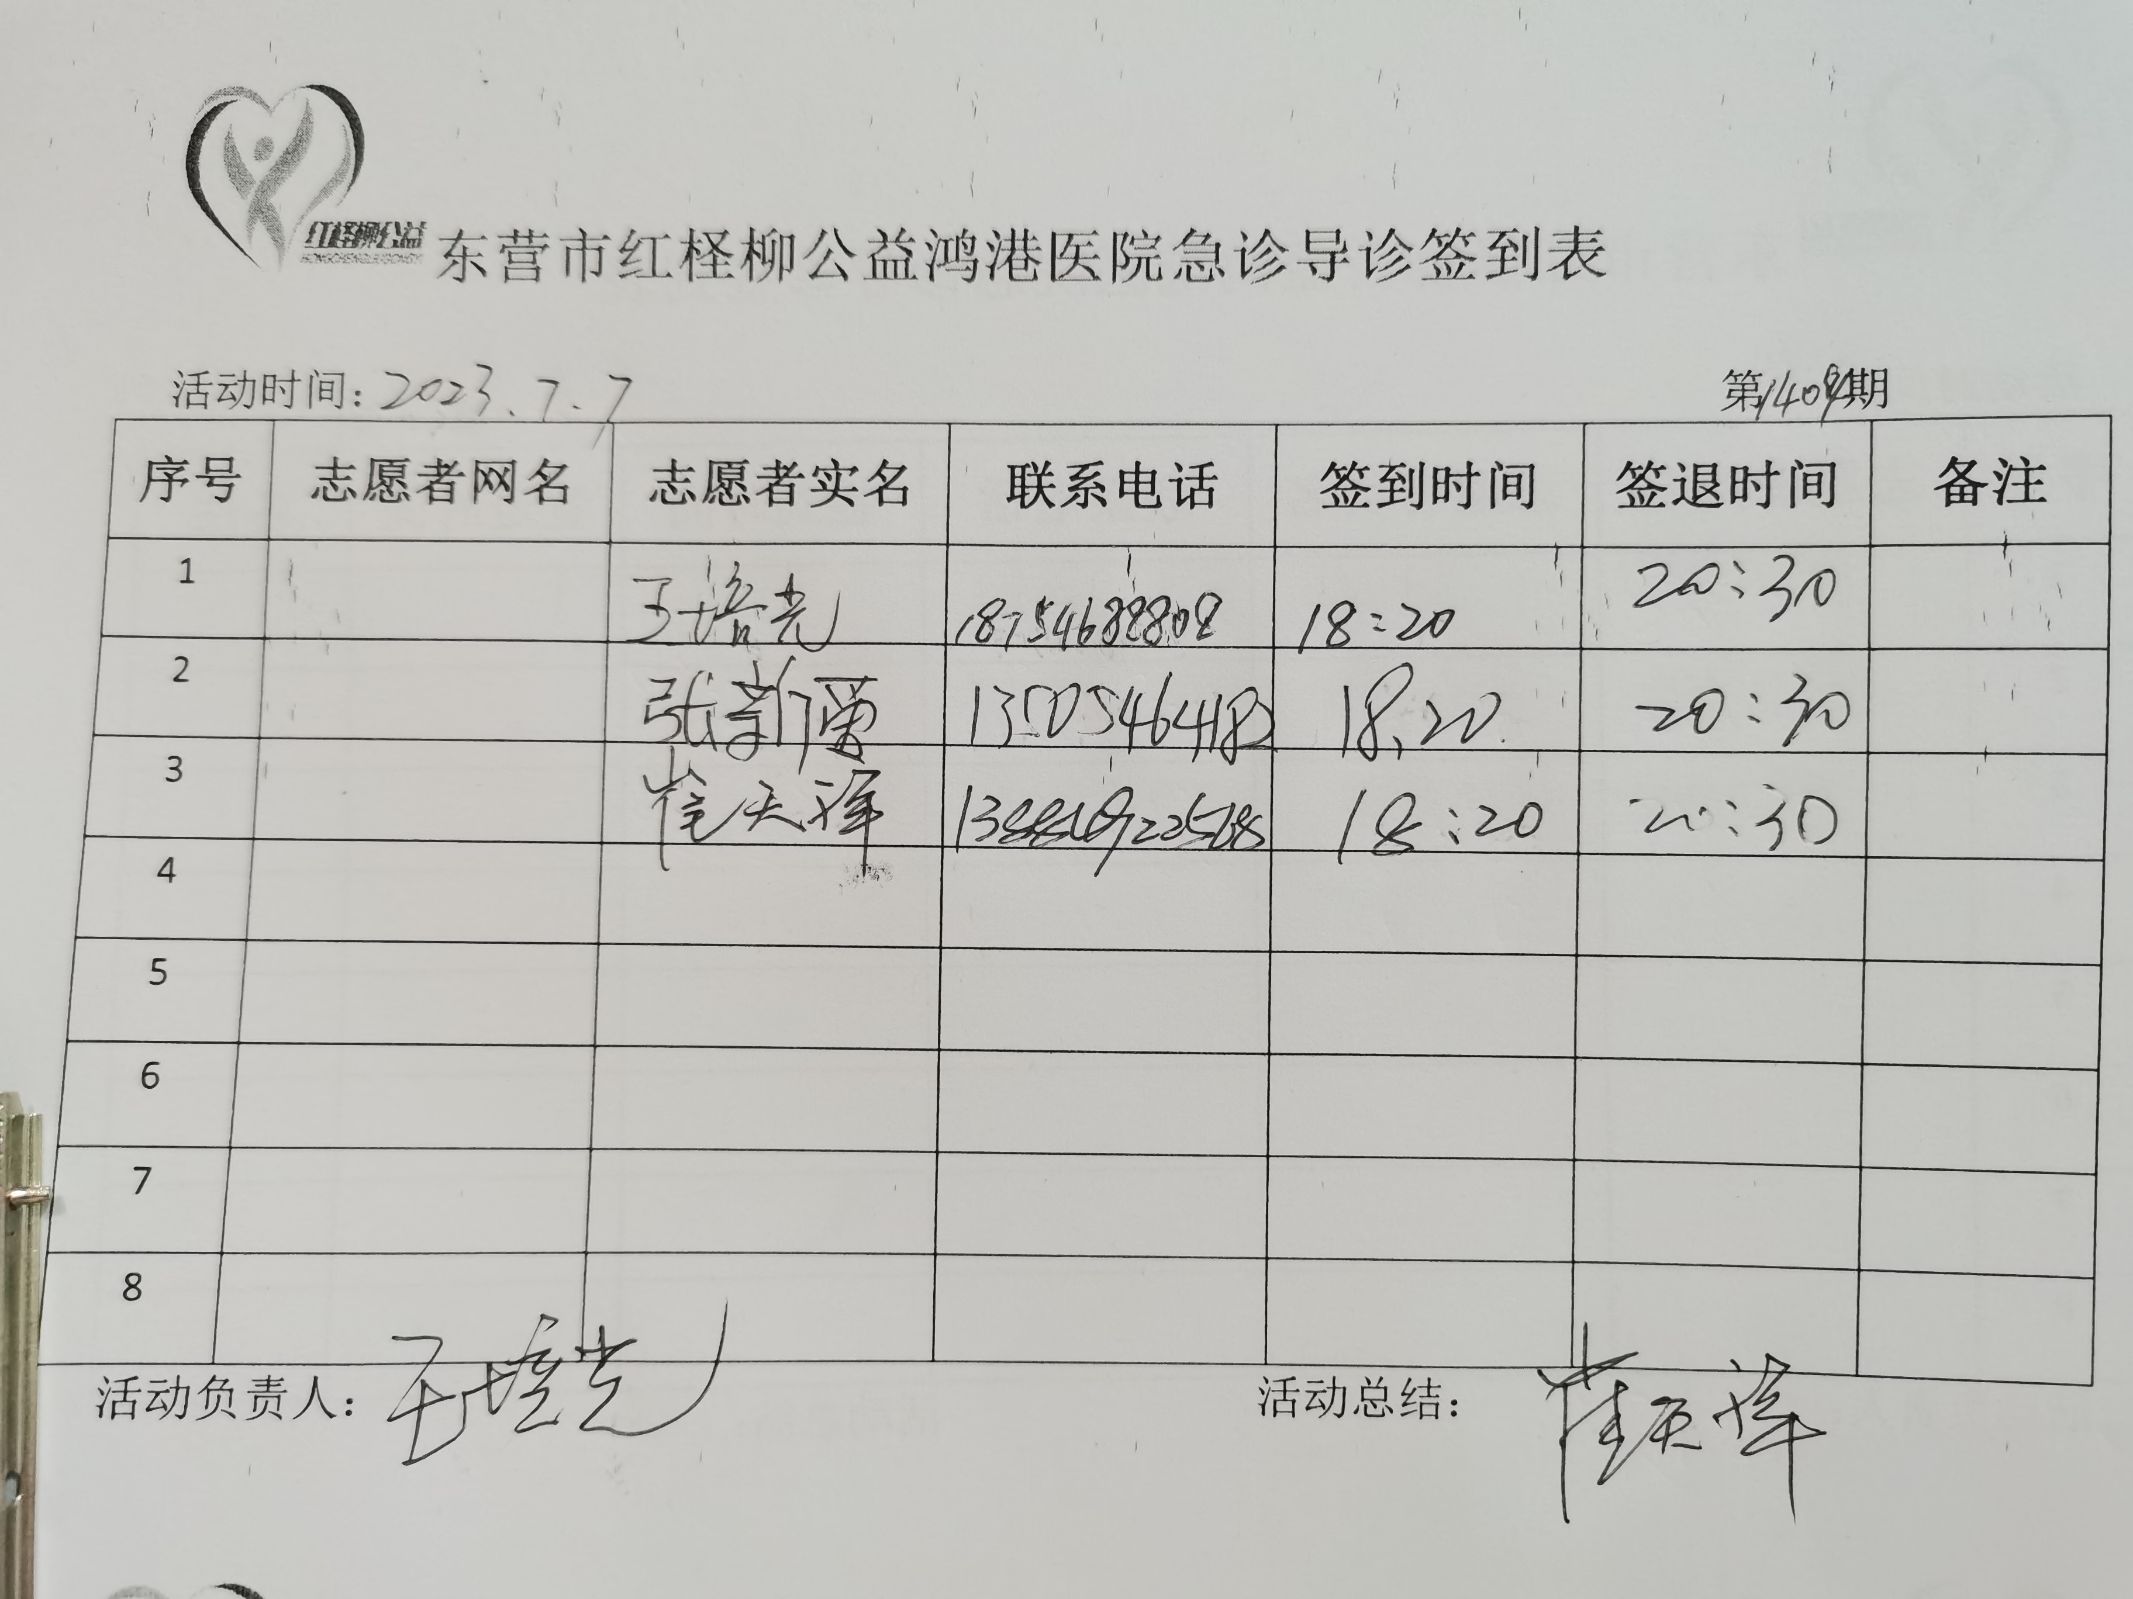 红柽柳公益
东营市红柽柳公益鸿港医院急诊导诊签到表
活动时间: 2023.7.7
第 期
序号 志愿者网名 志愿者实名 联系电话 签到时间 签退时间 备注
1 王培光 18754688808 18:20 20:30
2 张新 18.20 20:30
3 崔天祥 18:20 20:30
4
5
6
7
8
活动负责人: 王培光 活动总结: 崔天祥